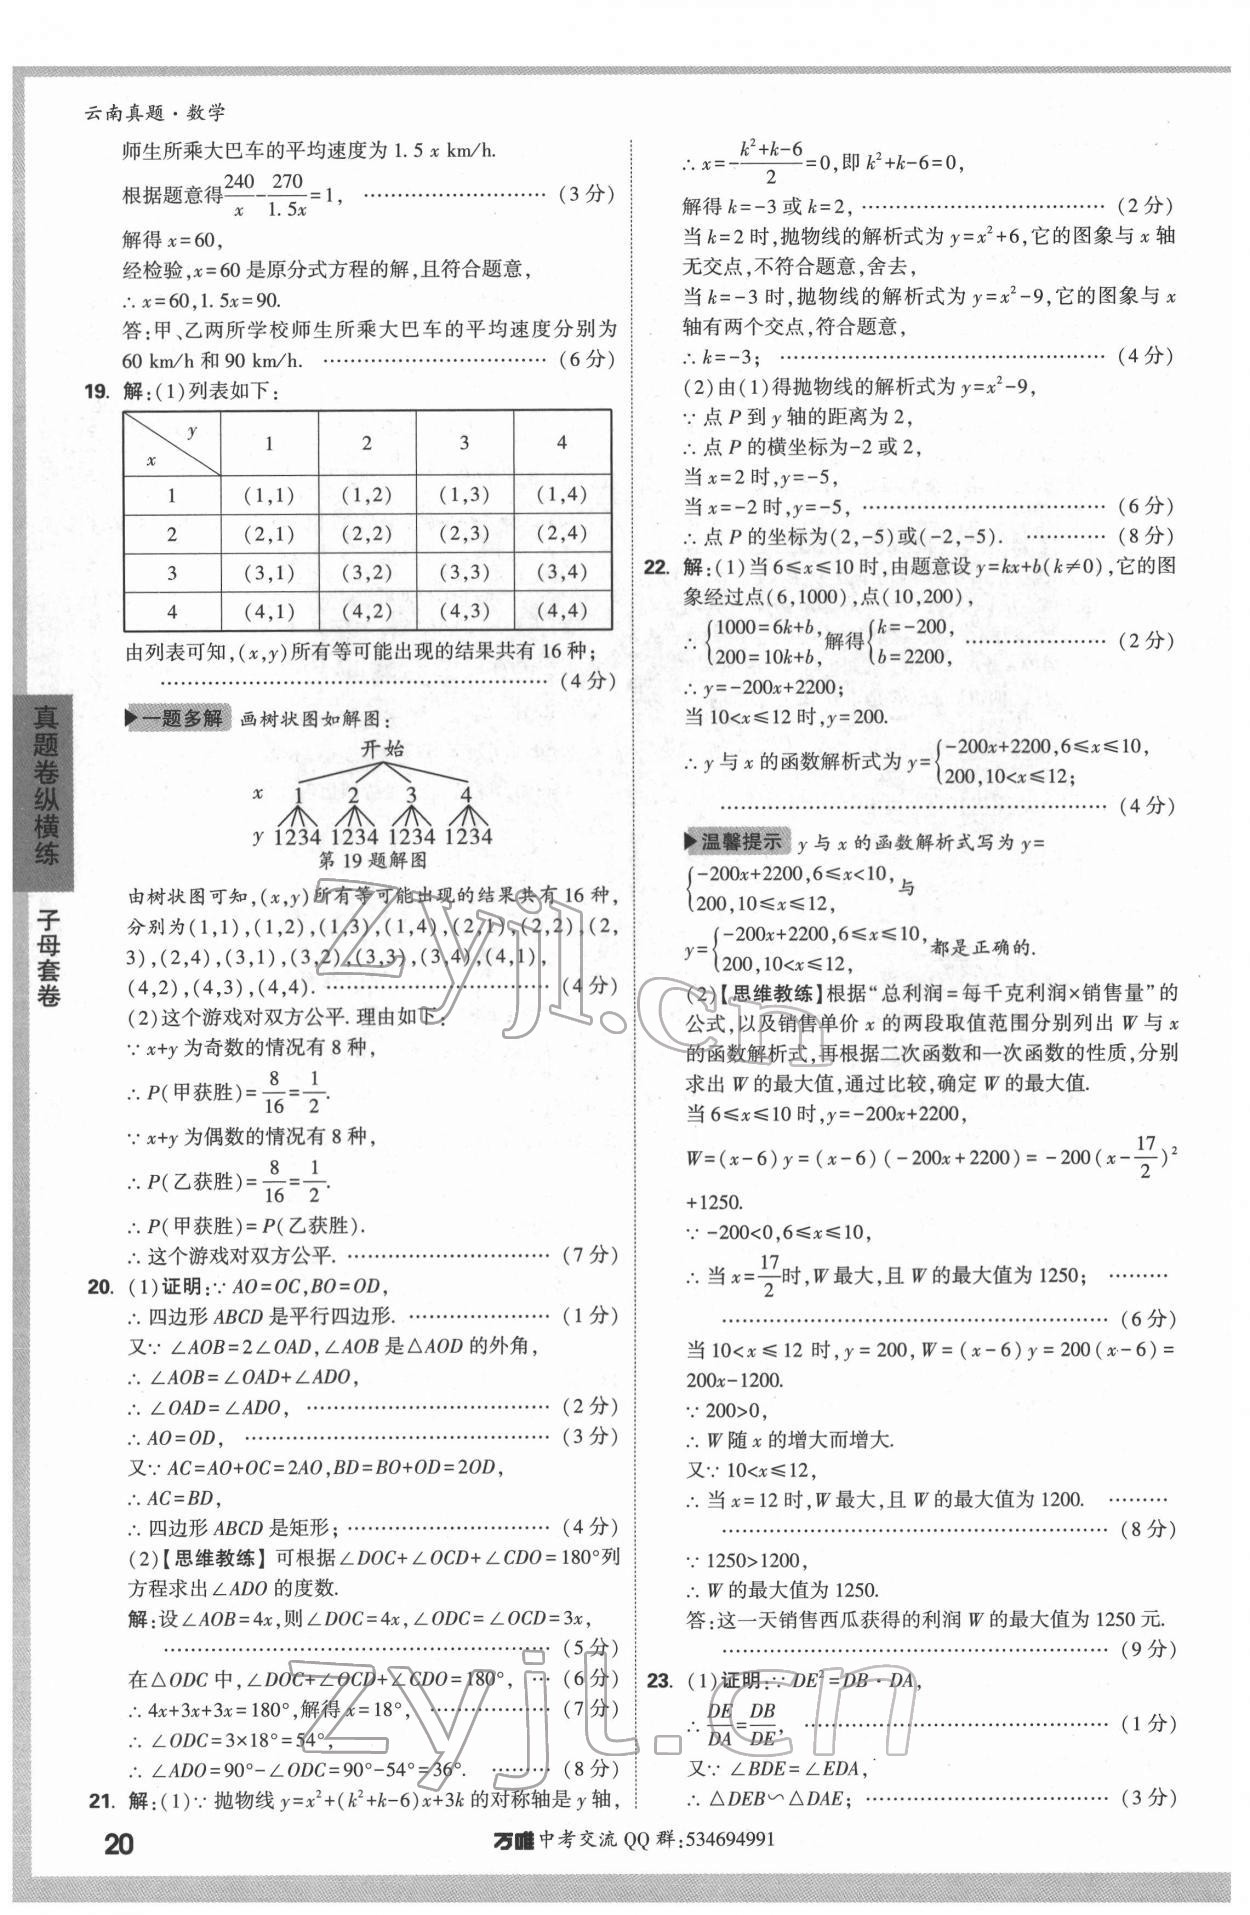 云南真题·数学
师生所乘大巴车的平均速度为 1.5x km/h.
根据题意得240/x-270/1.5x=1, ……(3 分)
解得 x=60,
经检验,x=60 是原分式方程的解,且符合题意,
∴x=60,1.5x=90.
答:甲、乙两所学校师生所乘大巴车的平均速度分别为
60 km/h 和 90 km/h. ……(6 分)
19. 解:(1)列表如下:
y
x
1 2 3 4
1 (1,1) (1,2) (1,3) (1,4)
2 (2,1) (2,2) (2,3) (2,4)
3 (3,1) (3,2) (3,3) (3,4)
4 (4,1) (4,2) (4,3) (4,4)
由列表可知,(x,y)所有等可能出现的结果共有 16 种;
……(4 分)
▶一题多解 画树状图如解图:
开始
x 1 2 3 4
y 1234 1234 1234 1234
第 19 题解图
由树状图可知,(x,y)所有等可能出现的结果共有 16 种,
分别为(1,1),(1,2),(1,3),(1,4),(2,1),(2,2),(2,
3),(2,4),(3,1),(3,2),(3,3),(3,4),(4,1),
(4,2),(4,3),(4,4). ……(4 分)
(2)这个游戏对双方公平.理由如下:
∵x+y 为奇数的情况有 8 种,
∴P(甲获胜)=8/16=1/2.
∵x+y 为偶数的情况有 8 种,
∴P(乙获胜)=8/16=1/2.
∴P(甲获胜)=P(乙获胜).
∴这个游戏对双方公平. ……(7 分)
20. (1)证明:∵AO=OC,BO=OD,
∴四边形 ABCD 是平行四边形. ……(1 分)
又∵∠AOB=2∠OAD,∠AOB 是△AOD 的外角,
∴∠AOB=∠OAD+∠ADO,
∴∠OAD=∠ADO, ……(2 分)
∴AO=OD, ……(3 分)
又∵AC=AO+OC=2AO,BD=BO+OD=2OD,
∴AC=BD,
∴四边形 ABCD 是矩形; ……(4 分)
(2)【思维教练】可根据∠DOC+∠OCD+∠CDO=180°列
方程求出∠ADO 的度数.
解:设∠AOB=4x,则∠DOC=4x,∠ODC=∠OCD=3x,
……(5 分)
在△ODC 中,∠DOC+∠OCD+∠CDO=180°, …(6 分)
∴4x+3x+3x=180°,解得 x=18°, ……(7 分)
∴∠ODC=3×18°=54°,
∴∠ADO=90°-∠ODC=90°-54°=36°. ……(8 分)
21. 解:(1)∵抛物线 y=x²+(k²+k-6)x+3k 的对称轴是 y 轴,
∴x=-(k²+k-6)/2=0,即 k²+k-6=0,
解得 k=-3 或 k=2, ……(2 分)
当 k=2 时,抛物线的解析式为 y=x²+6,它的图象与 x 轴
无交点,不符合题意,舍去,
当 k=-3 时,抛物线的解析式为 y=x²-9,它的图象与 x
轴有两个交点,符合题意,
∴k=-3; ……(4 分)
(2)由(1)得抛物线的解析式为 y=x²-9,
∵点 P 到 y 轴的距离为 2,
∴点 P 的横坐标为-2 或 2,
当 x=2 时,y=-5,
当 x=-2 时,y=-5, ……(6 分)
∴点 P 的坐标为(2,-5)或(-2,-5). ……(8 分)
22. 解:(1)当 6≤x≤10 时,由题意设 y=kx+b(k≠0),它的图
象经过点(6,1000),点(10,200),
∴{1000=6k+b, 200=10k+b, 解得{k=-200, b=2200, ……(2 分)
∴y=-200x+2200;
当 10<x≤12 时,y=200.
∴y 与 x 的函数解析式为 y={-200x+2200,6≤x≤10, 200,10<x≤12;
……(4 分)
▶温馨提示 y 与 x 的函数解析式写为 y=
{-200x+2200,6≤x<10, 200,10≤x≤12, 与
y={-200x+2200,6≤x≤10, 200,10<x≤12, 都是正确的.
(2)【思维教练】根据“总利润=每千克利润×销售量”的
公式,以及销售单价 x 的两段取值范围分别列出 W 与 x
的函数解析式,再根据二次函数和一次函数的性质,分别
求出 W 的最大值,通过比较,确定 W 的最大值.
当 6≤x≤10 时,y=-200x+2200,
W=(x-6)y=(x-6)(-200x+2200)=-200(x-17/2)²
+1250.
∵-200<0,6≤x≤10,
∴当 x=17/2时,W 最大,且 W 的最大值为 1250; ……
……(6 分)
当 10<x≤12 时,y=200,W=(x-6)y=200(x-6)=
200x-1200.
∵200>0,
∴W 随 x 的增大而增大.
又∵10<x≤12,
∴当 x=12 时,W 最大,且 W 的最大值为 1200. ……
……(8 分)
∵1250>1200,
∴W 的最大值为 1250.
答:这一天销售西瓜获得的利润 W 的最大值为 1250 元.
……(9 分)
23. (1)证明:∵DE²=DB·DA,
∴DE/DA=DB/DE, ……(1 分)
又∵∠BDE=∠EDA,
∴△DEB∽△DAE; ……(3 分)
真题卷纵横练
子母套卷
20
万唯中考交流 QQ 群:534694991
zyjl.cn
zyjl.cn